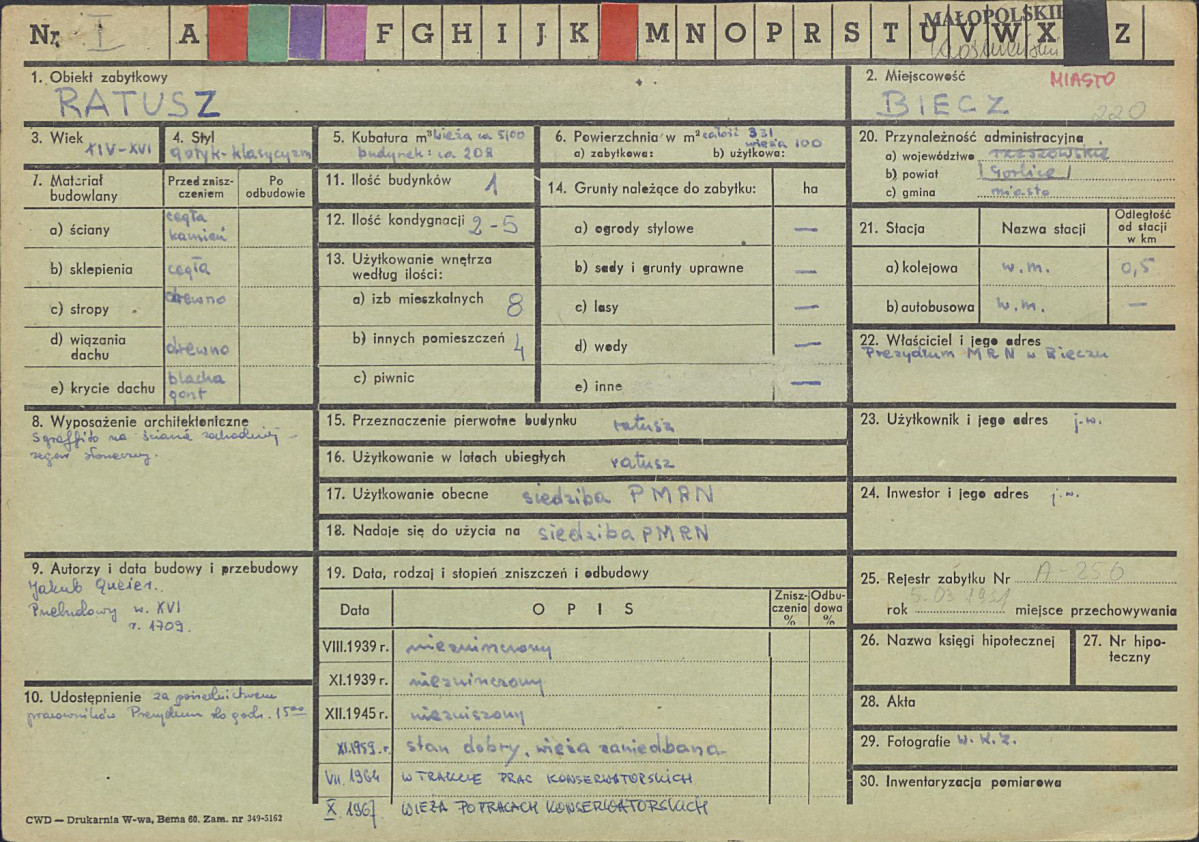 Nr. I A F G H I J K M N O P R S T U V W X Z
MAŁOPOLSKIE
1. Obiekt zabytkowy
RATUSZ
2. Miejscowość MIASTO
BIECZ
220
3. Wiek
XIV-XVI
4. Styl
gotyk-klasycyzm
5. Kubatura m³ wieża ca 5100
budynek: ca 208
6. Powierzchnia w m² całość 331
wieża 100
a) zabytkowa: b) użytkowa:
20. Przynależność administracyjna
a) województwo rzeszowskie
b) powiat Gorlice
c) gmina miasto
7. Materiał
budowlany
Przed znisz-
czeniem
Po
odbudowie
a) ściany cegła
kamień
b) sklepienia cegła
c) stropy drewno
d) wiązania
dachu drewno
e) krycie dachu blacha
gont
11. Ilość budynków 1
12. Ilość kondygnacji 2-5
13. Użytkowanie wnętrza
według ilości:
a) izb mieszkalnych 8
b) innych pomieszczeń 4
c) piwnic
14. Grunty należące do zabytku: ha
a) ogrody stylowe —
b) sady i grunty uprawne —
c) lasy —
d) wody —
e) inne —
21. Stacja Nazwa stacji Odległość
od stacji
w km
a) kolejowa w.m. 0,5
b) autobusowa w.m. —
22. Właściciel i jego adres
Prezydium MRN w Bieczu
8. Wyposażenie architektoniczne
Sgraffito na ścianie zachodniej –
zegar słoneczny.
15. Przeznaczenie pierwotne budynku ratusz
16. Użytkowanie w latach ubiegłych ratusz
17. Użytkowanie obecne siedziba PMRN
18. Nadaje się do użycia na siedziba PMRN
23. Użytkownik i jego adres j.w.
24. Inwestor i jego adres j.w.
9. Autorzy i data budowy i przebudowy
Jakub
Przebudowy w. XVI
r. 1709.
10. Udostępnienie za pośrednictwem
pracowników Prezydium do godz. 15⁰⁰
19. Data, rodzaj i stopień zniszczeń i odbudowy
Data OPIS Znisz-
czenia
%
Odbu-
dowa
%
VIII.1939 r. niezniszczony
XI.1939 r. niezniszczony
XII.1945 r. niezniszony
XI.1959 r. stan dobry, wieża zaniedbana
VII. 1964 W TRAKCIE PRAC KONSERWATORSKICH
X. 1967 WIEŻA PO PRACACH KONSERWATORSKICH
25. Rejestr zabytku Nr A-256
rok 5.03 1931 miejsce przechowywania
26. Nazwa księgi hipotecznej
27. Nr hipo-
teczny
28. Akta
29. Fotografie W.K.Z.
30. Inwentaryzacja pomiarowa
CWD — Drukarnia W-wa, Bema 60. Zam. nr 349-5162